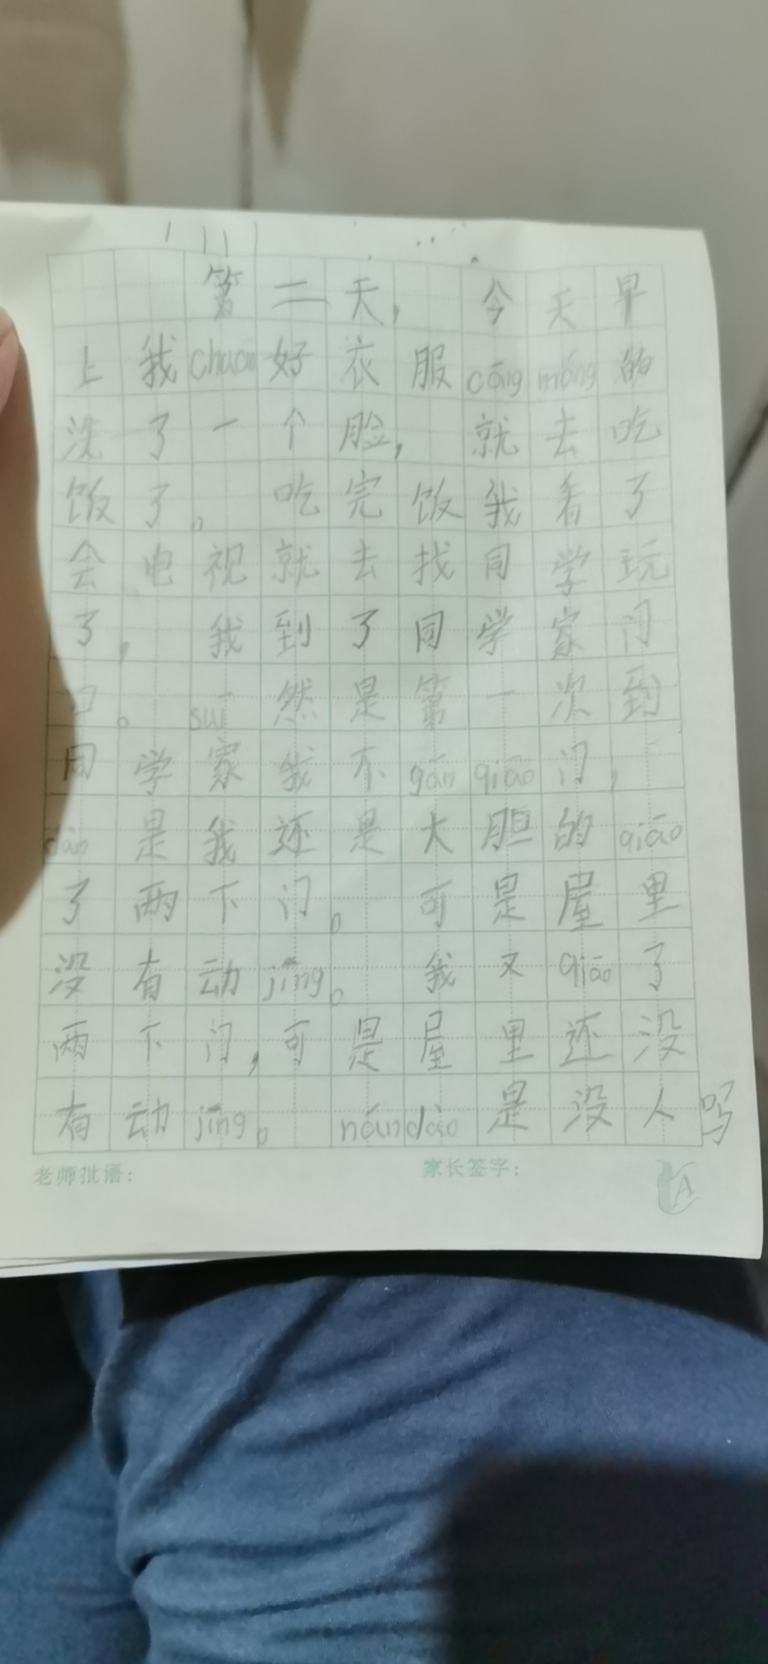 第二天，今天早
上我chuān好衣服cōng máng的
洗了一个脸，就去吃
饭了。吃完饭我看了
会电视就去找同学玩
了，我到了同学家门
口。suī然是第一次到
同学家我不gǎn qiāo门，
dàn是我还是大胆的qiāo
了两下门。可是屋里
没有动jīng。我又qiāo了
两下门，可是屋里还没
有动jīng。nán dào是没人吗
老师批语： 家长签字：